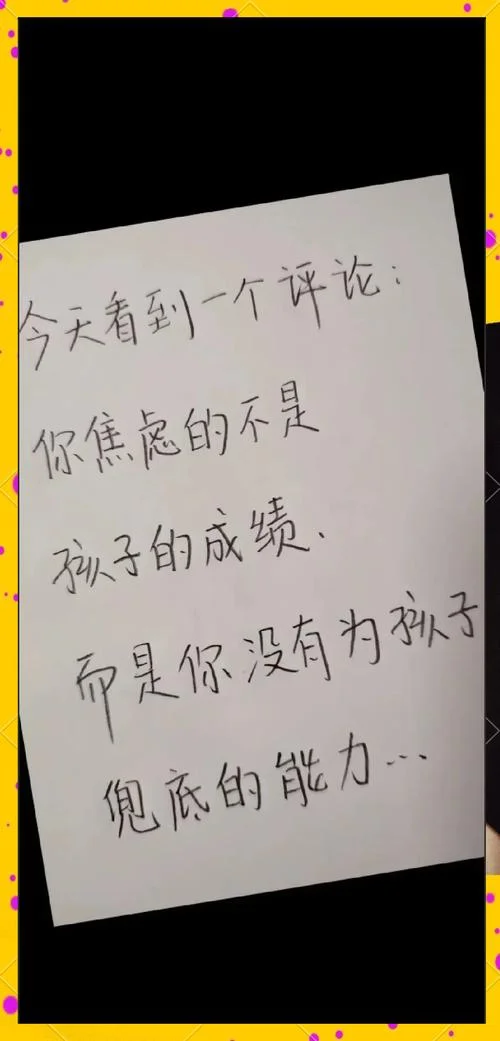 今天看到一个评论:
你焦虑的不是
孩子的成绩、
而是你没有为孩子
兜底的能力...